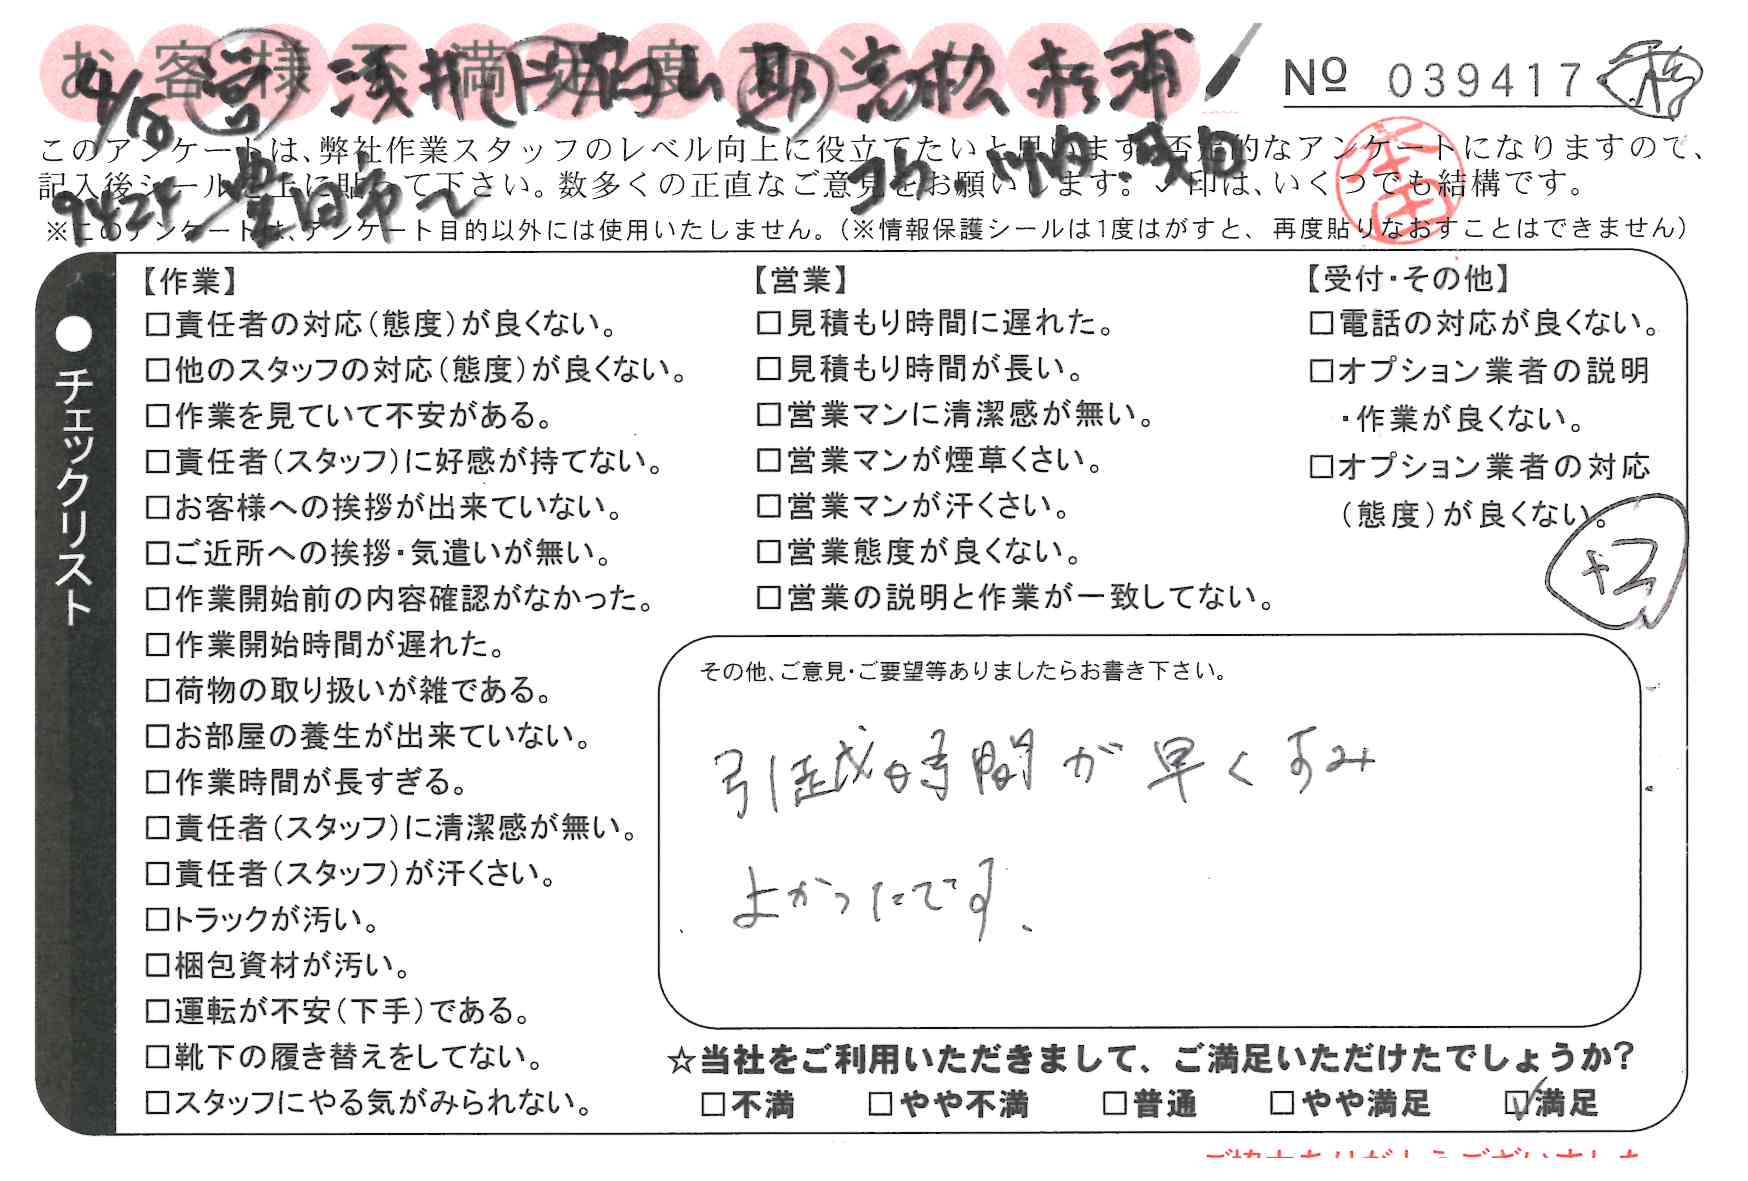 お客様不満足度アンケート
4/18 営 浅井 助 高松 赤浦
№ 039417
このアンケートは、弊社作業スタッフのレベル向上に役立てたいと思います。否定的なアンケートになりますので、
記入後シールを上に貼って下さい。数多くの正直なご意見をお願いします。✓印は、いくつでも結構です。
豊田市へ
※このアンケートは、アンケート目的以外には使用いたしません。(※情報保護シールは1度はがすと、再度貼りなおすことはできません)
●チェックリスト
【作業】
□責任者の対応(態度)が良くない。
□他のスタッフの対応(態度)が良くない。
□作業を見ていて不安がある。
□責任者(スタッフ)に好感が持てない。
□お客様への挨拶が出来ていない。
□ご近所への挨拶・気遣いが無い。
□作業開始前の内容確認がなかった。
□作業開始時間が遅れた。
□荷物の取り扱いが雑である。
□お部屋の養生が出来ていない。
□作業時間が長すぎる。
□責任者(スタッフ)に清潔感が無い。
□責任者(スタッフ)が汗くさい。
□トラックが汚い。
□梱包資材が汚い。
□運転が不安(下手)である。
□靴下の履き替えをしてない。
□スタッフにやる気がみられない。
【営業】
□見積もり時間に遅れた。
□見積もり時間が長い。
□営業マンに清潔感が無い。
□営業マンが煙草くさい。
□営業マンが汗くさい。
□営業態度が良くない。
□営業の説明と作業が一致してない。
【受付・その他】
□電話の対応が良くない。
□オプション業者の説明
・作業が良くない。
□オプション業者の対応
(態度)が良くない。
+2
その他、ご意見・ご要望等ありましたらお書き下さい。
引越時間が早くすみ
よかったです。
☆当社をご利用いただきまして、ご満足いただけたでしょうか?
□不満 □やや不満 □普通 □やや満足 ☑満足
ご協力ありがとうございました